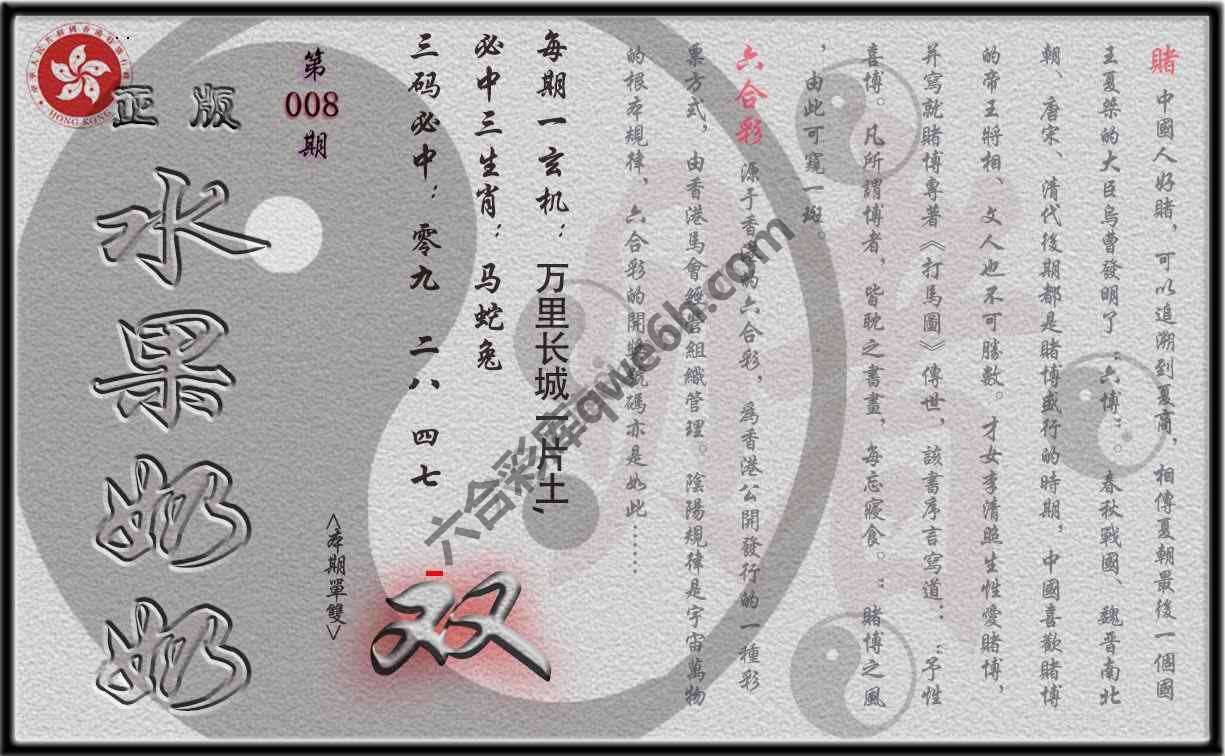 賭 中國人好賭，可以追溯到夏商，相傳夏朝最後一個國
王夏桀的大臣烏曹發明了：六博：。春秋戰國、魏晋南北
朝、唐宋、清代後期都是賭博盛行的時期，中國喜歡賭博
的帝王將相、文人也不可勝數。才女李清照生性愛賭博，
并寫就賭博專著《打馬圖》傳世，該書序言寫道：：予性
喜博。凡所謂博者，皆耽之晝書，每忘寢食。：賭博之風
，由此可窺一斑。
六合彩 源于香港的六合彩，爲香港公開發行的一種彩
票方式，由香港馬會經營組織管理。陰陽規律是宇宙萬物
的根本規律、六合彩的開獎號碼亦是如此……
每期一玄机：万里长城一片土，
必中三生肖：马蛇兔
三码必中：零九 二八 四七
第
008
期
<本期單雙>
双
正版
水果奶奶
HONG KONG
六合彩库qwe6h.com